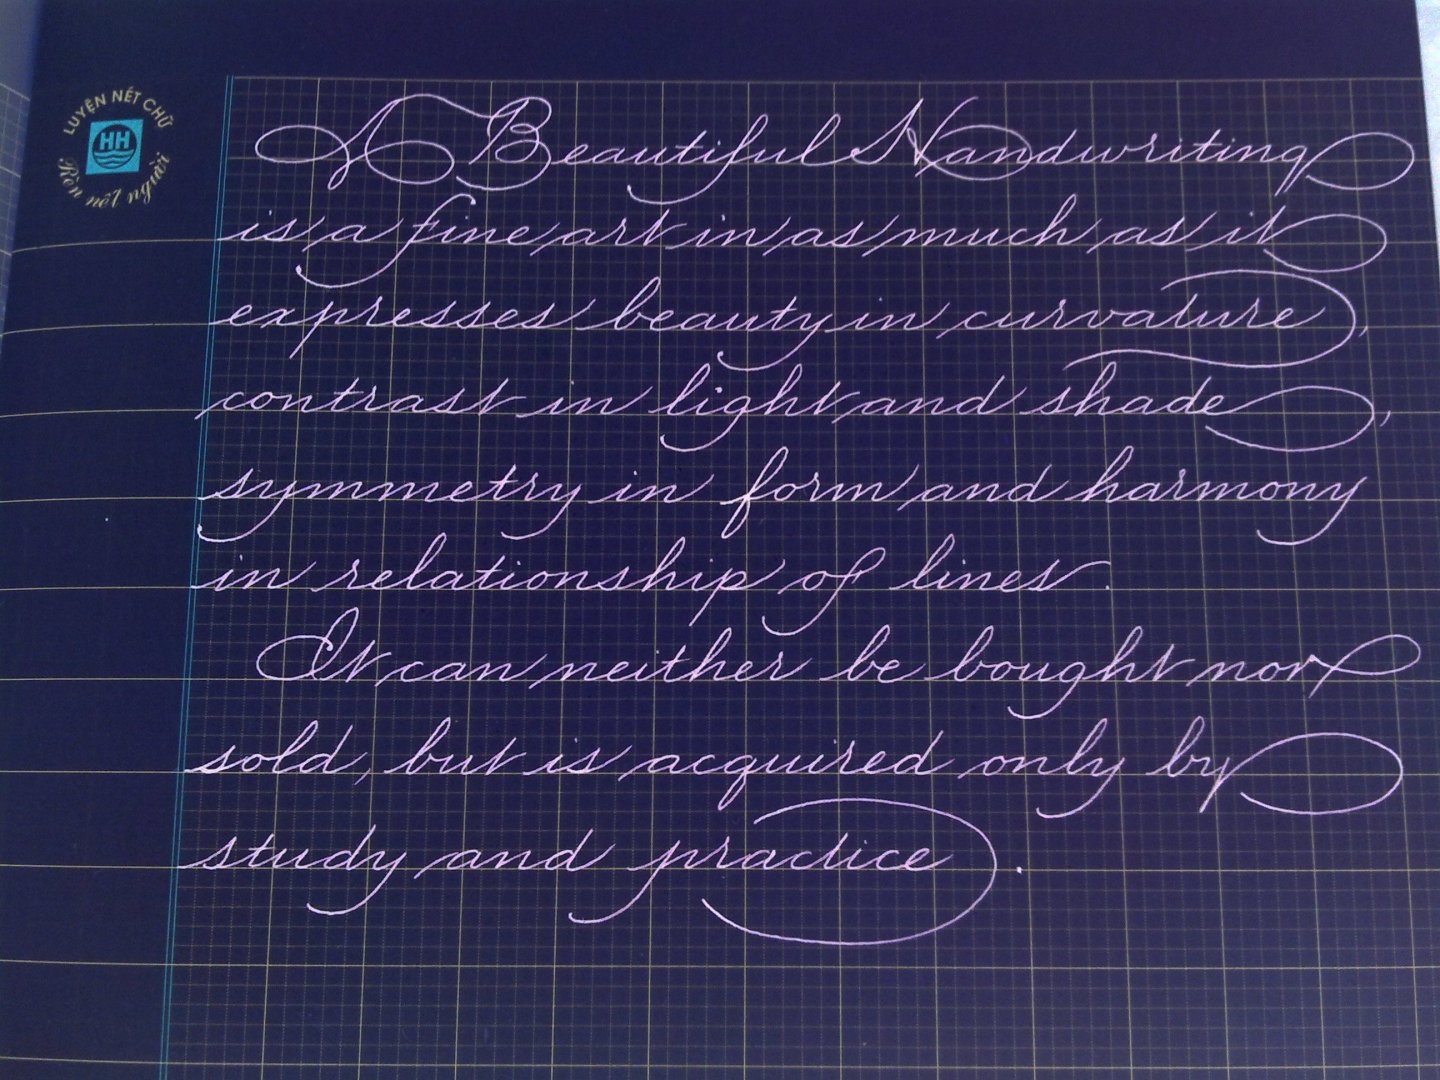 LUYỆN NÉT CHỮ
HH
Rèn nết người
A Beautiful Handwriting
is a fine art in as much as it
expresses beauty in curvature,
contrast in light and shade,
symmetry in form and harmony
in relationship of lines.
It can neither be bought nor
sold, but is acquired only by
study and practice.